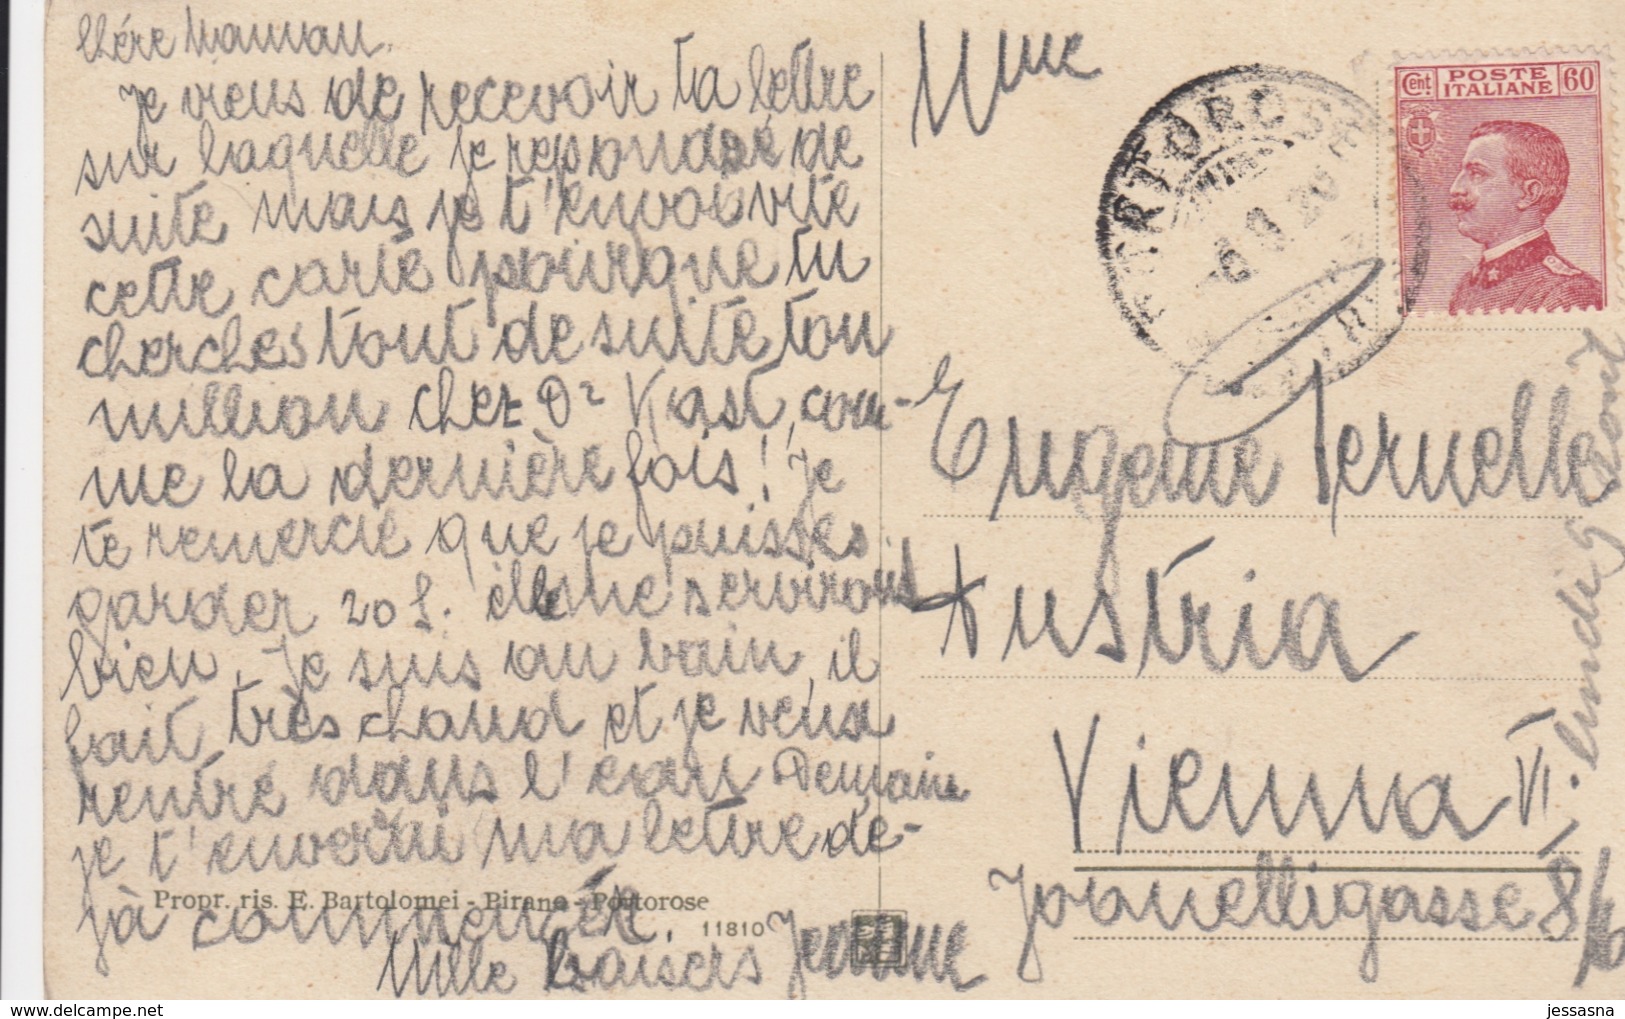 Chére Maman.
Je viens de recevoir ta lettre
sur laquelle je repondré de
suite mais je t'envois vite
cette carte pourque tu
cherches tout de suite ton
million chez Dr Kast, com-
me la dernière fois! Je
te remercie que je puisses
garder 20 S. ille me serviront
bien. Je suis au bain, il
fait très chaud et je veux
rentré dans l'eau Demain
je t'enverrai ma lettre dé-
jà commencée.
Mille baisers
Propr. ris. E. Bartolomei - Pirano - Portorose
11810
Mme
PORTOROSE
Cent. POSTE ITALIANE 60
Eugenie
Austria
Vienna VI.
8/16
jessasna